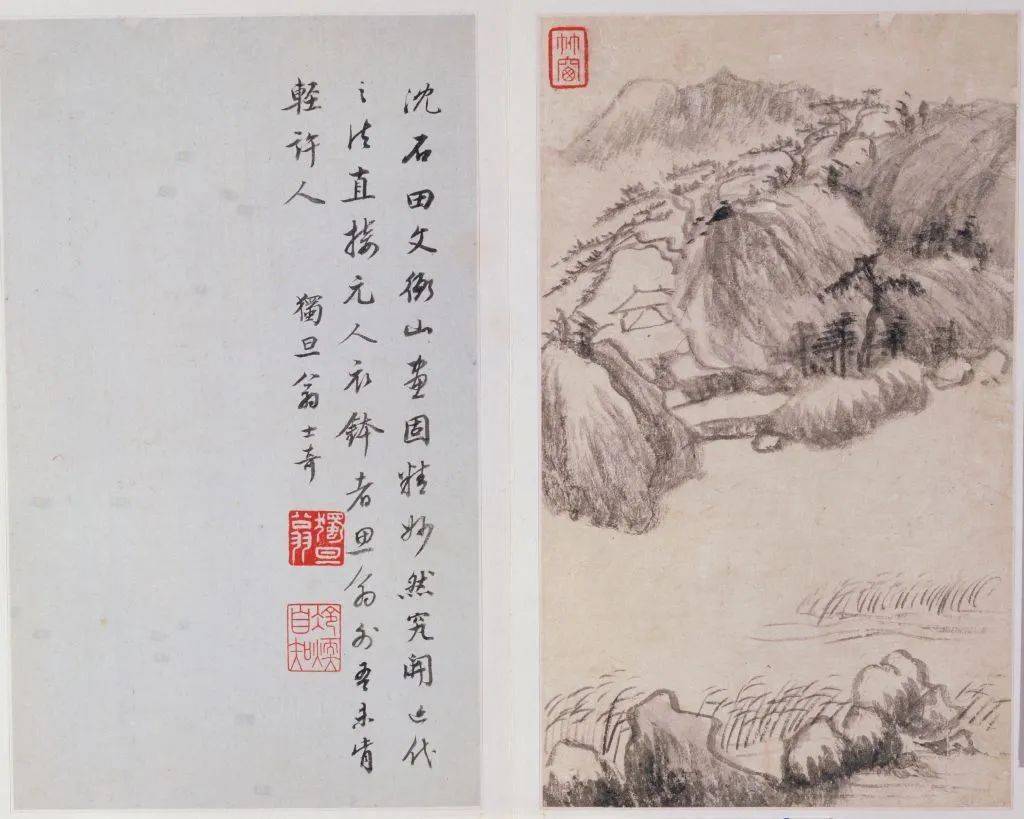 沈石田文衡山畫固精妙然究開近代
之法直接元人衣鉢者思翁外吾未肯
輕許人
獨旦翁士奇
獨旦翁
竹窗